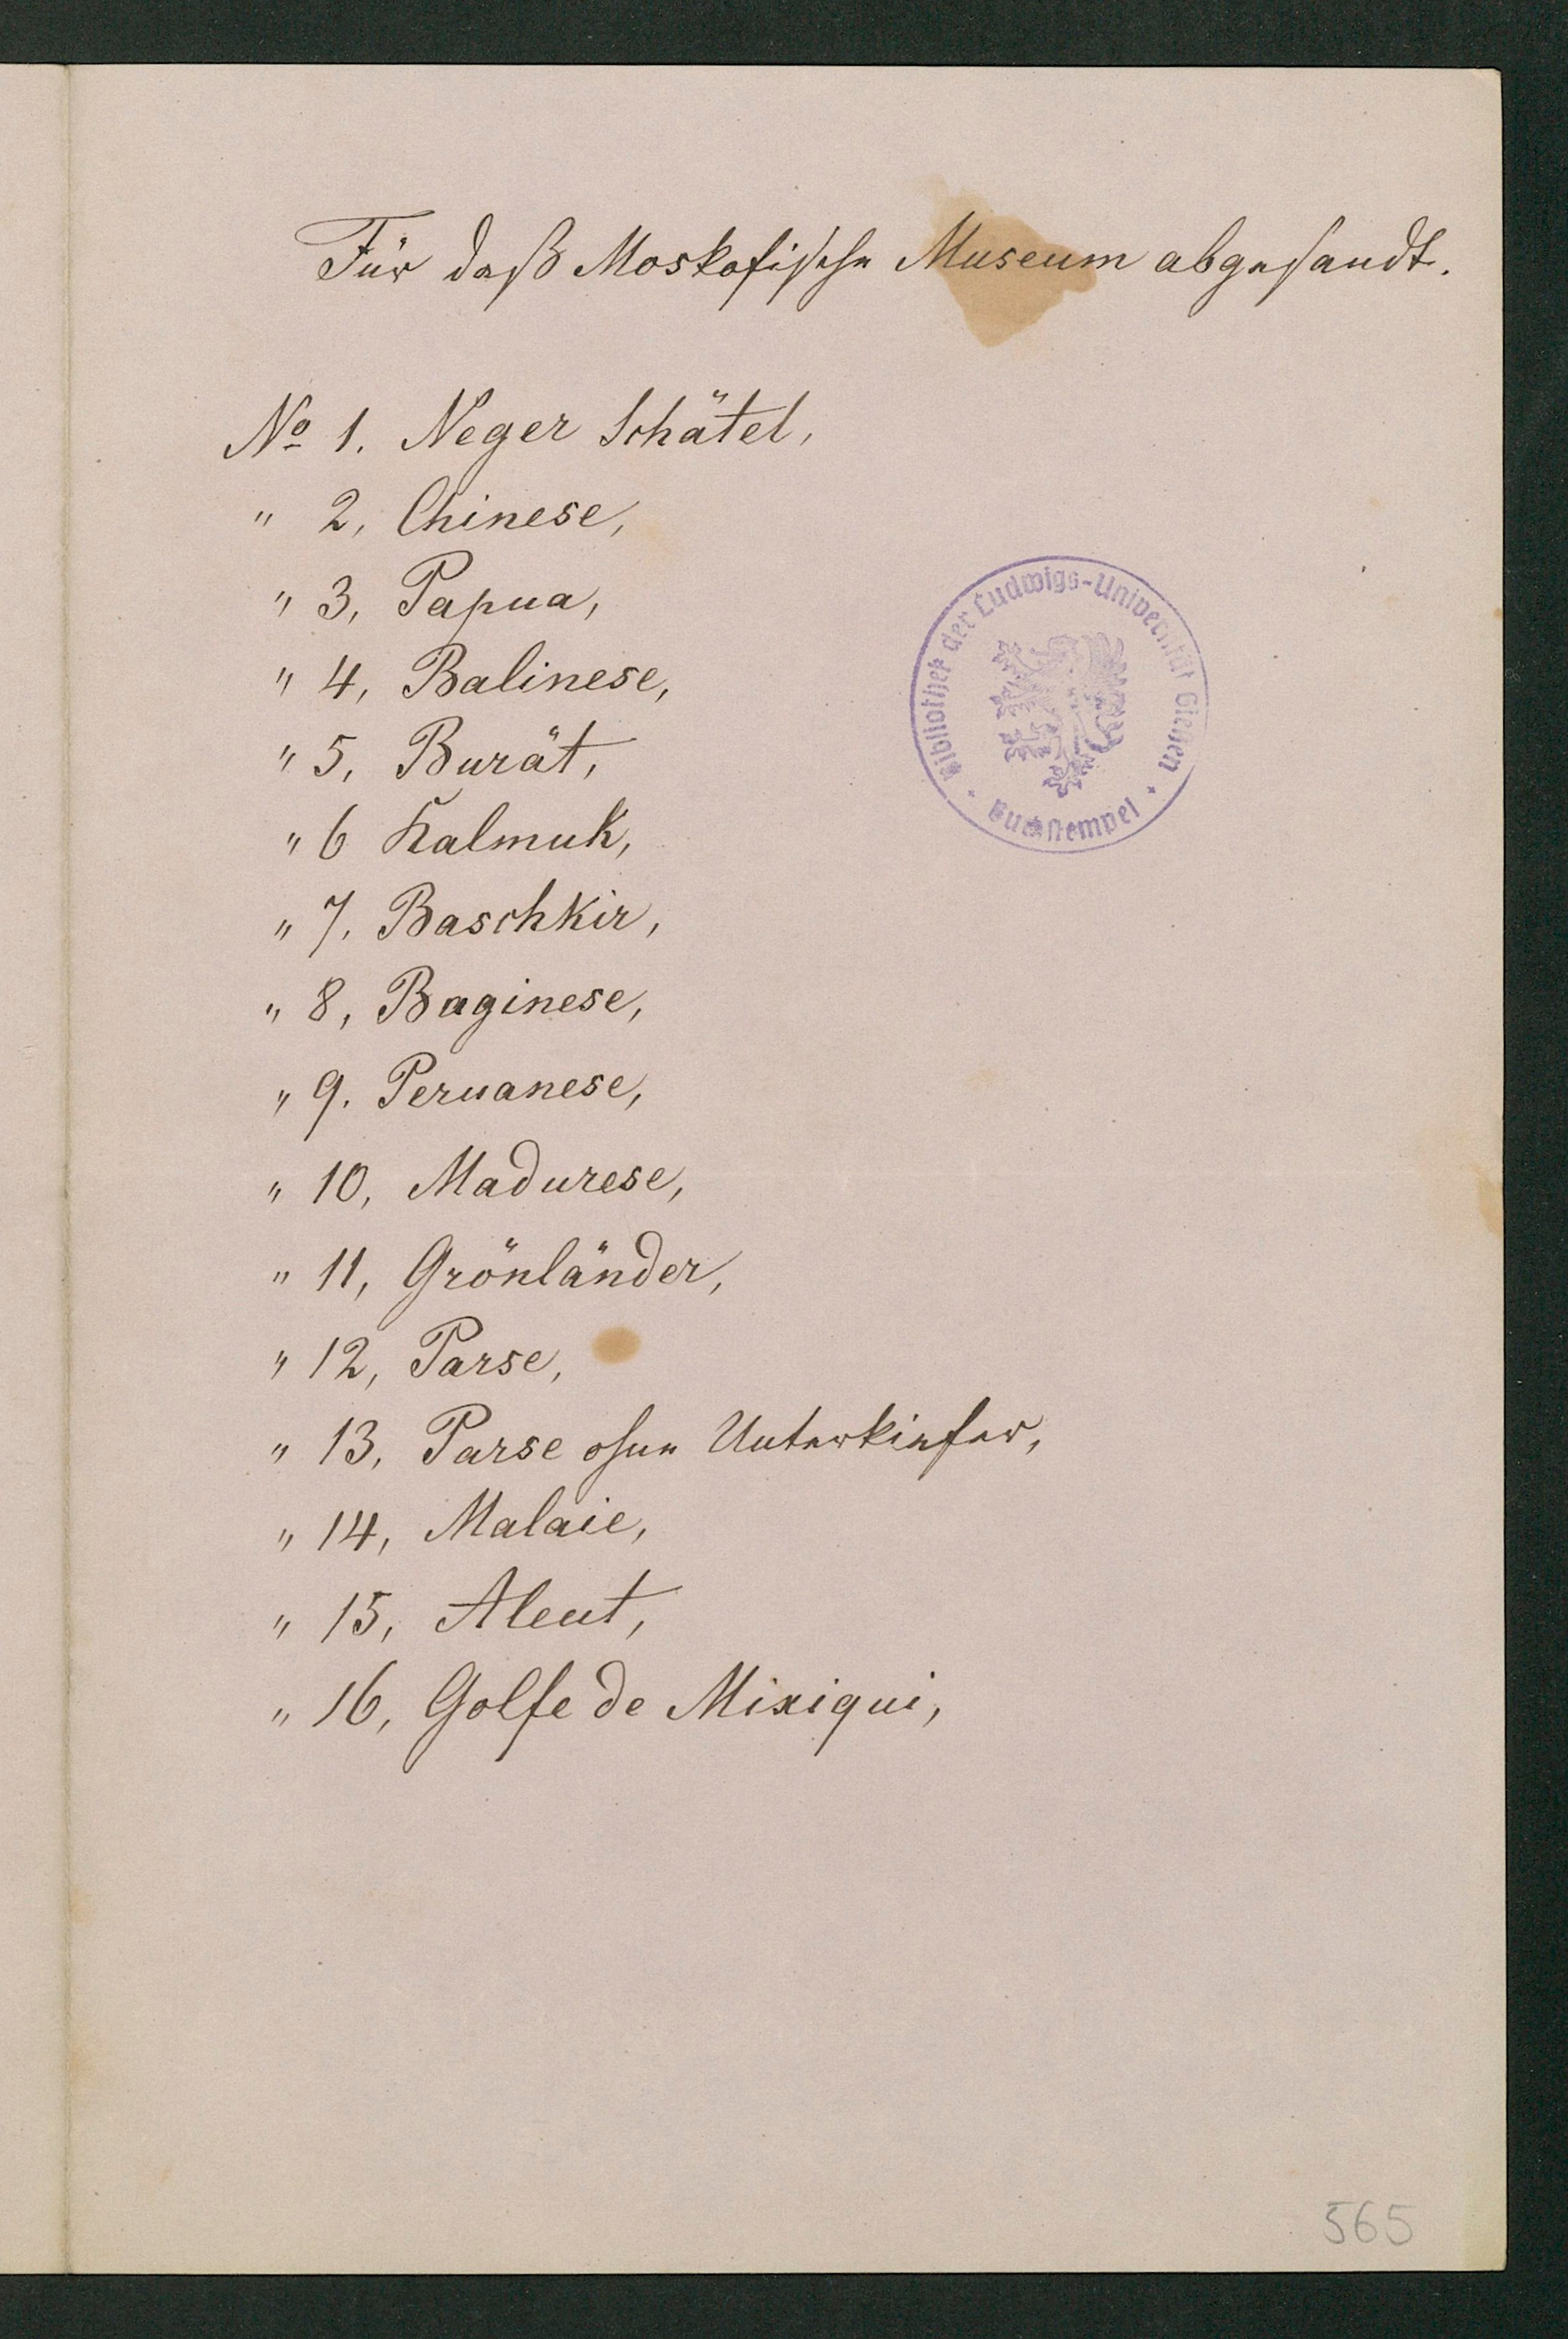 Für daß Moskofische Museum abgesandt.
No 1. Neger Schätel,
" 2, Chinese,
" 3, Papua,
" 4, Balinese,
" 5, Burät,
" 6 Kalmuk,
" 7. Baschkir,
" 8, Baginese,
" 9. Peruanese,
" 10, Madurese,
" 11, Grönländer,
" 12, Parse,
" 13, Parse ohne Unterkiefer,
" 14, Malaie,
" 15, Aleut,
" 16, Golfe de Mixiqui,
Bibliothek der Ludwigs-Universität Gießen
Buchstempel
565